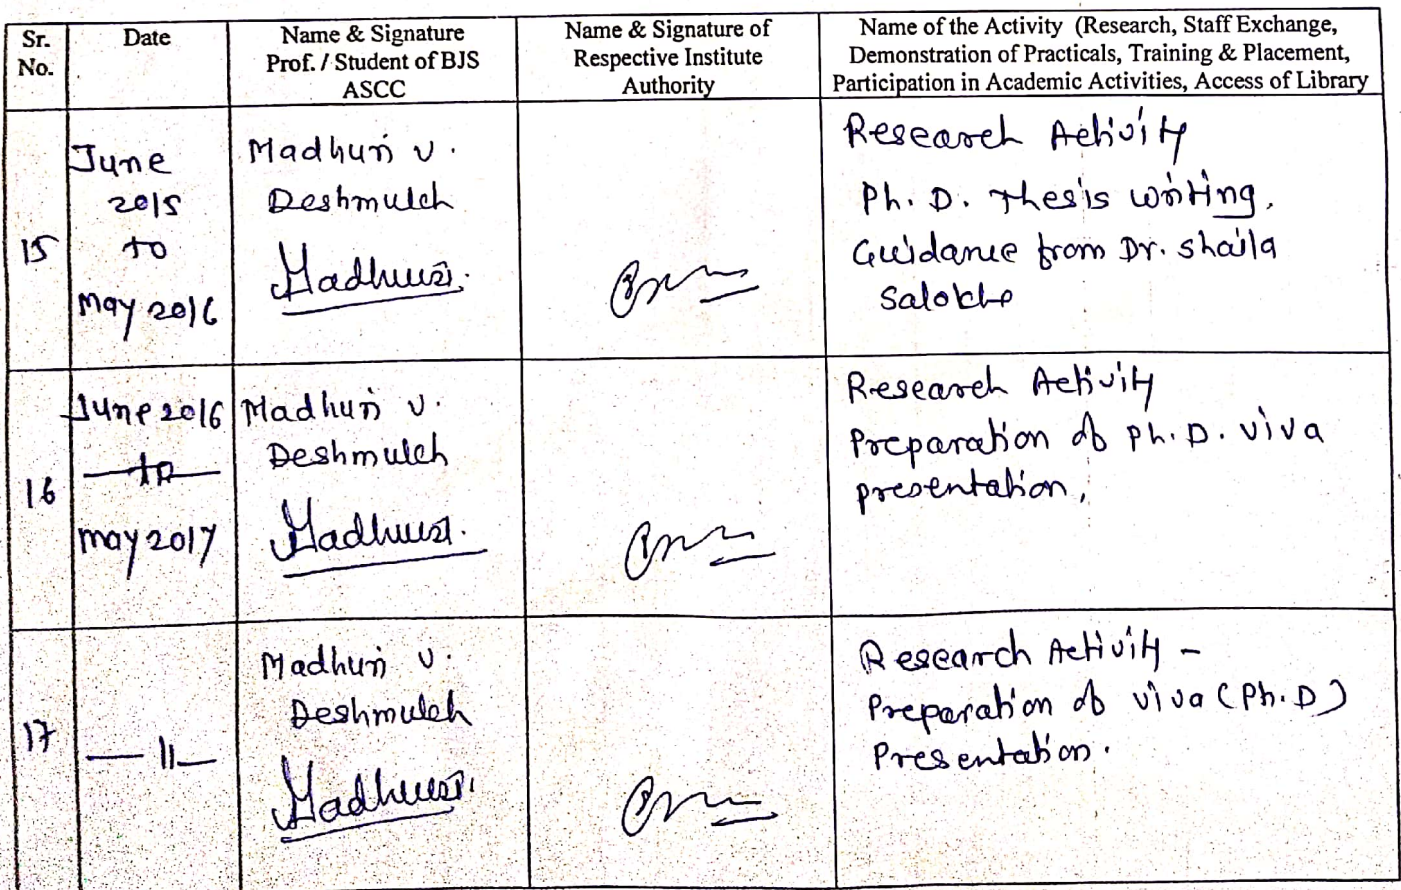 Sr. No.
Date
Name & Signature
Prof. / Student of BJS
ASCC
Name & Signature of
Respective Institute
Authority
Name of the Activity (Research, Staff Exchange,
Demonstration of Practicals, Training & Placement,
Participation in Academic Activities, Access of Library
15
June
2015
to
May 2016
Madhuri V.
Deshmukh
Madhuri
Research Activity
Ph. D. Thesis writing,
Guidance from Dr. Shaila
Salokhe
16
June 2016
to
May 2017
Madhuri V.
Deshmukh
Madhuri
Research Activity
Preparation of Ph. D. viva
presentation,
17
— 11 —
Madhuri V.
Deshmukh
Madhuri
Research Activity -
Preparation of viva (Ph. D)
Presentation.